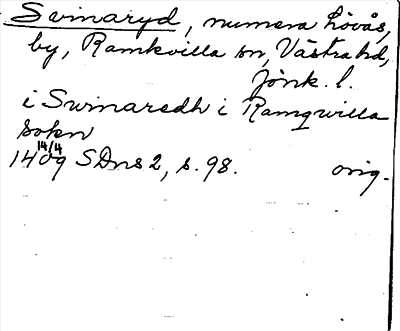 Svinaryd, numera Lövås,
by, Ramkvilla sn, Västra hd,
Jönk. l.
i Swinaredh i Ramqwilla
sokn
14 14/4 09 SDns 2, s. 98. orig.